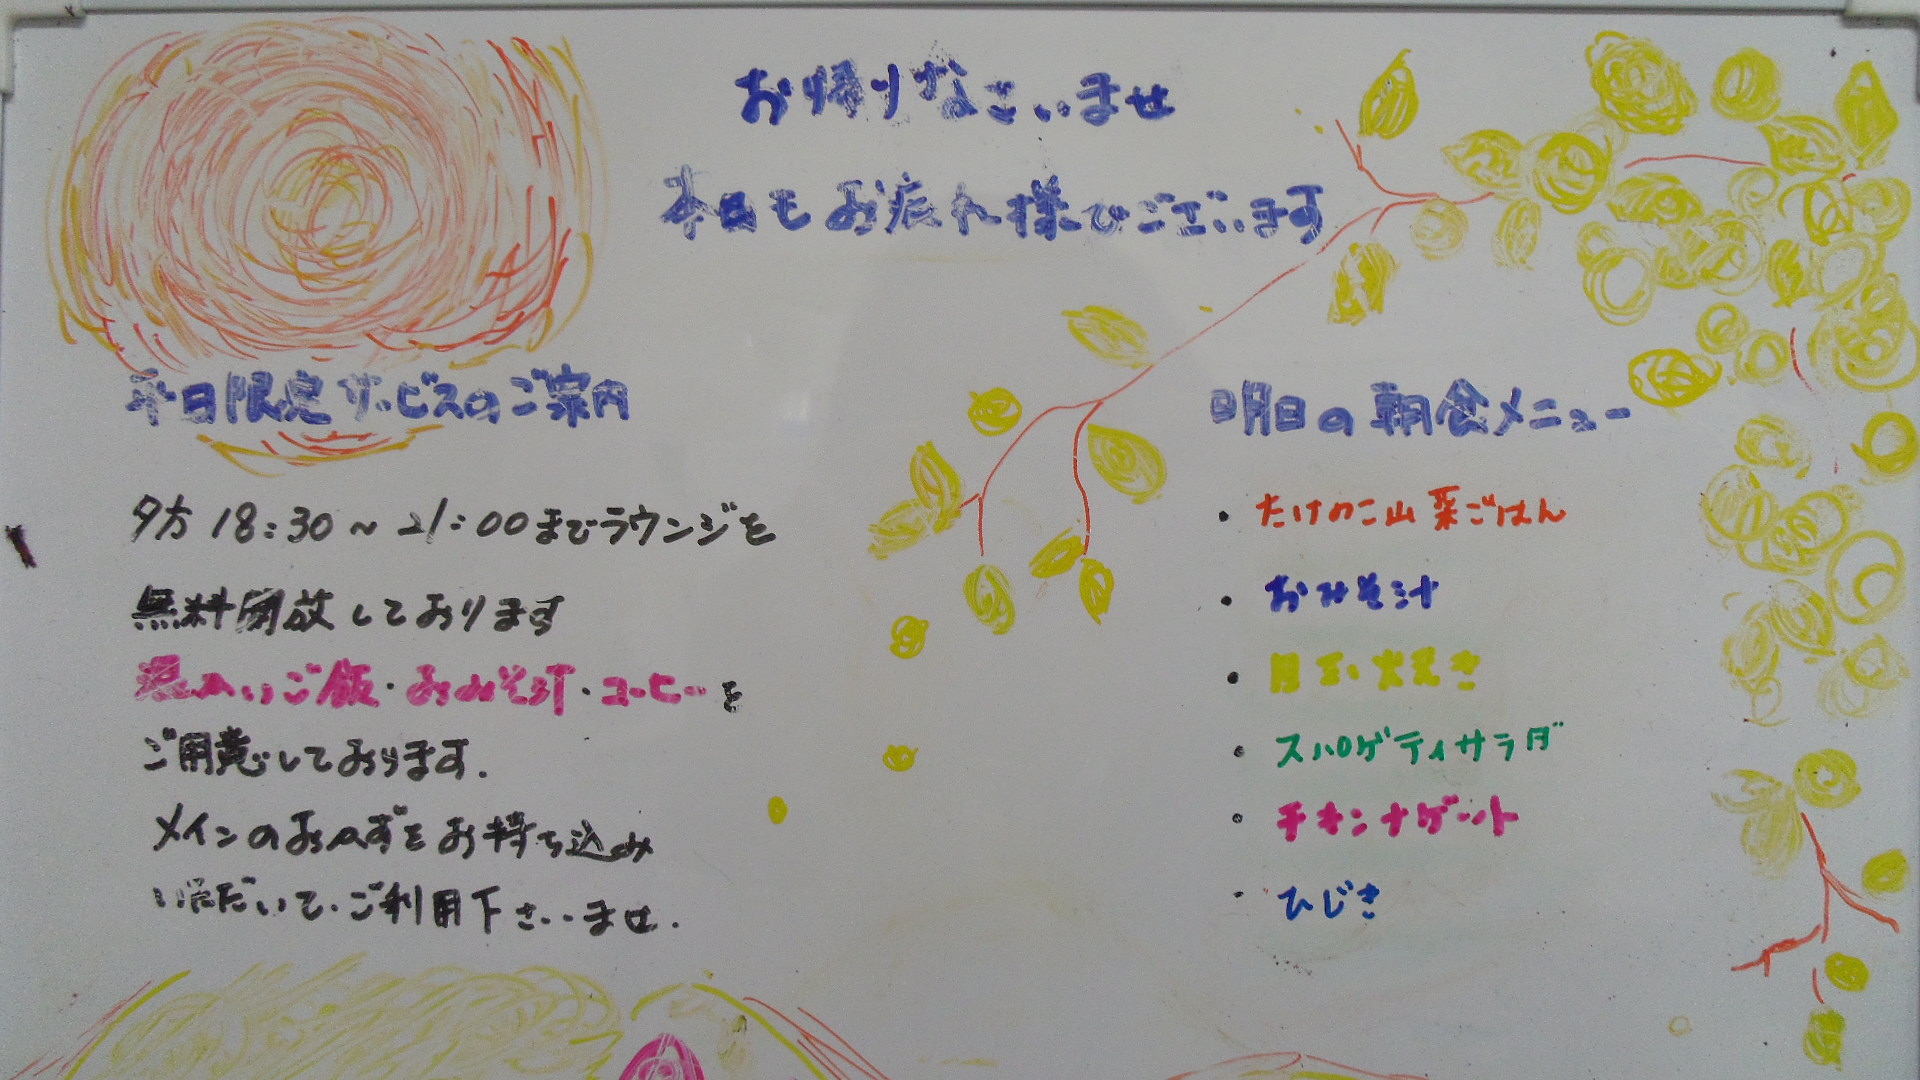 お帰りなさいませ
本日もお疲れ様でございます
平日限定サービスのご案内
夕方18:30~21:00までラウンジを
無料開放しております
温かいご飯・おみそ汁・コーヒーを
ご用意しております.
メインのおかずをお持ち込み
いただいて、ご利用下さいませ.
明日の朝食メニュー
・たけのこ山菜ごはん
・おみそ汁
・目玉焼き
・スパゲティサラダ
・チキンナゲット
・ひじき